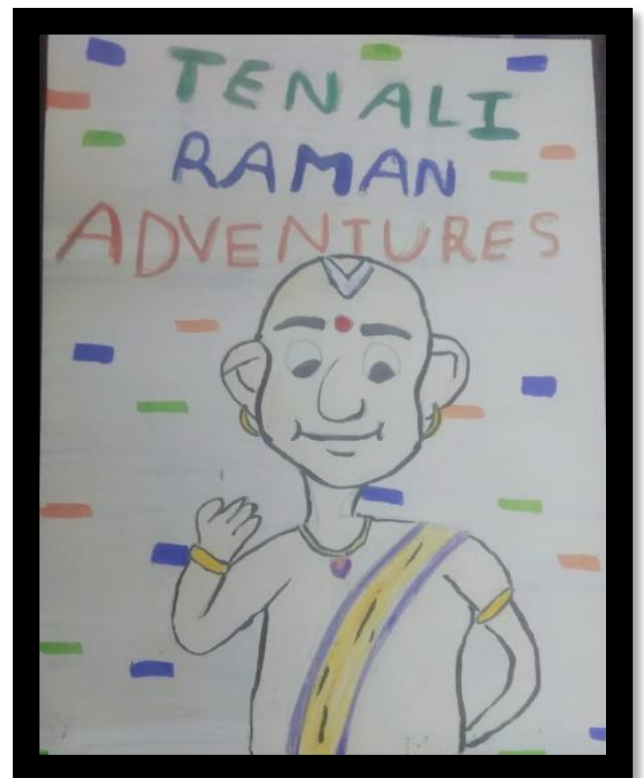 TENALI
RAMAN
ADVENTURES